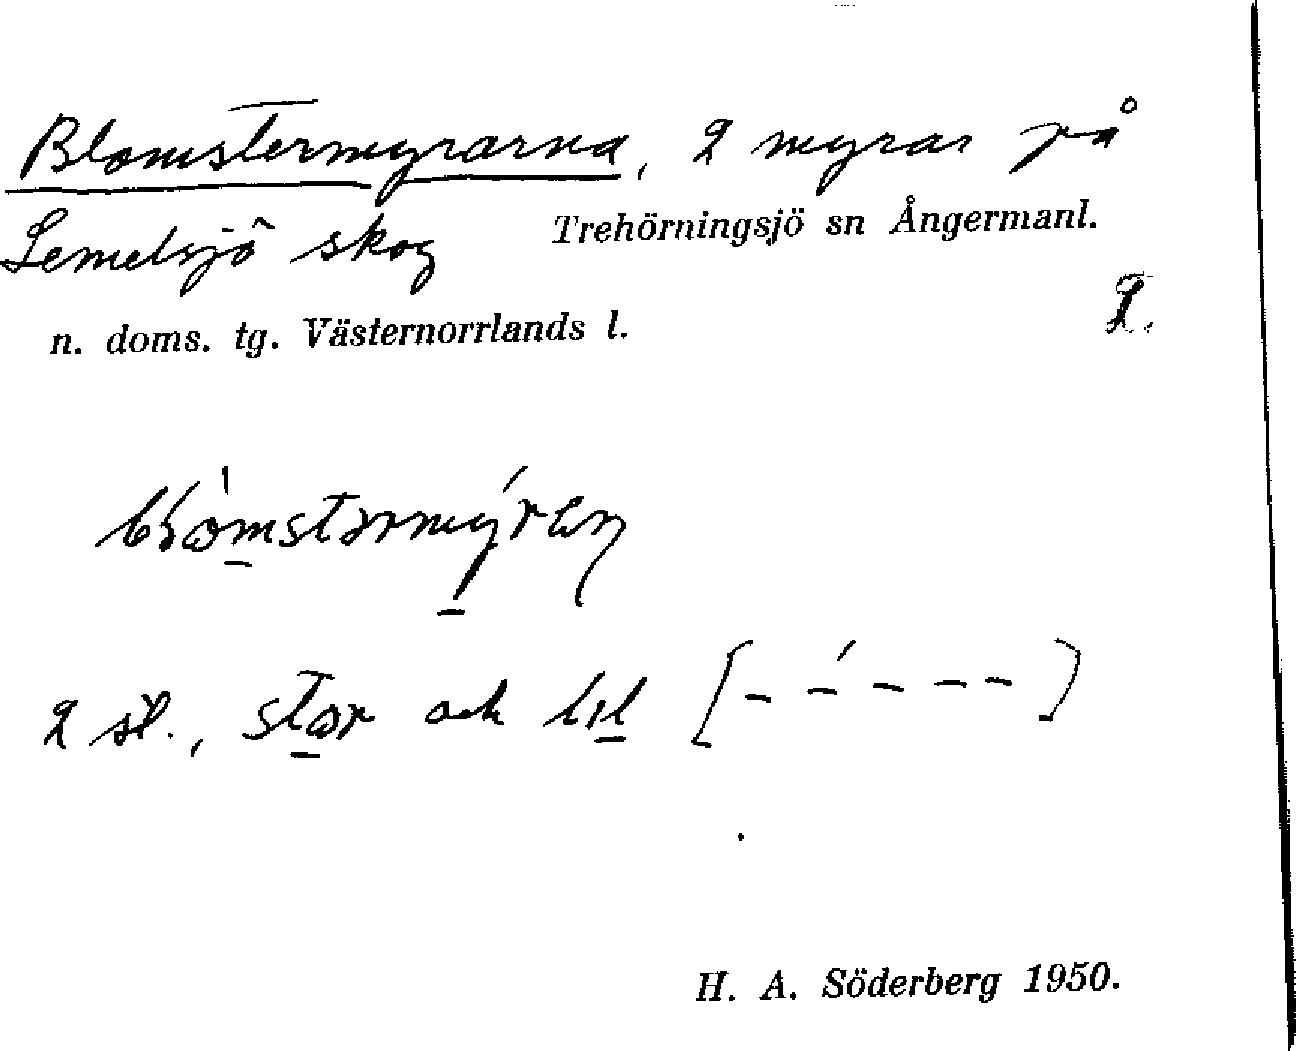 Blomstermyrarna, 2 myrar på
Lemelsjö skog Trehörningsjö sn Ångermanl.
n. doms. tg. Västernorrlands l.
2 st., stor och lit [- -́ - - -]
H. A. Söderberg 1950.